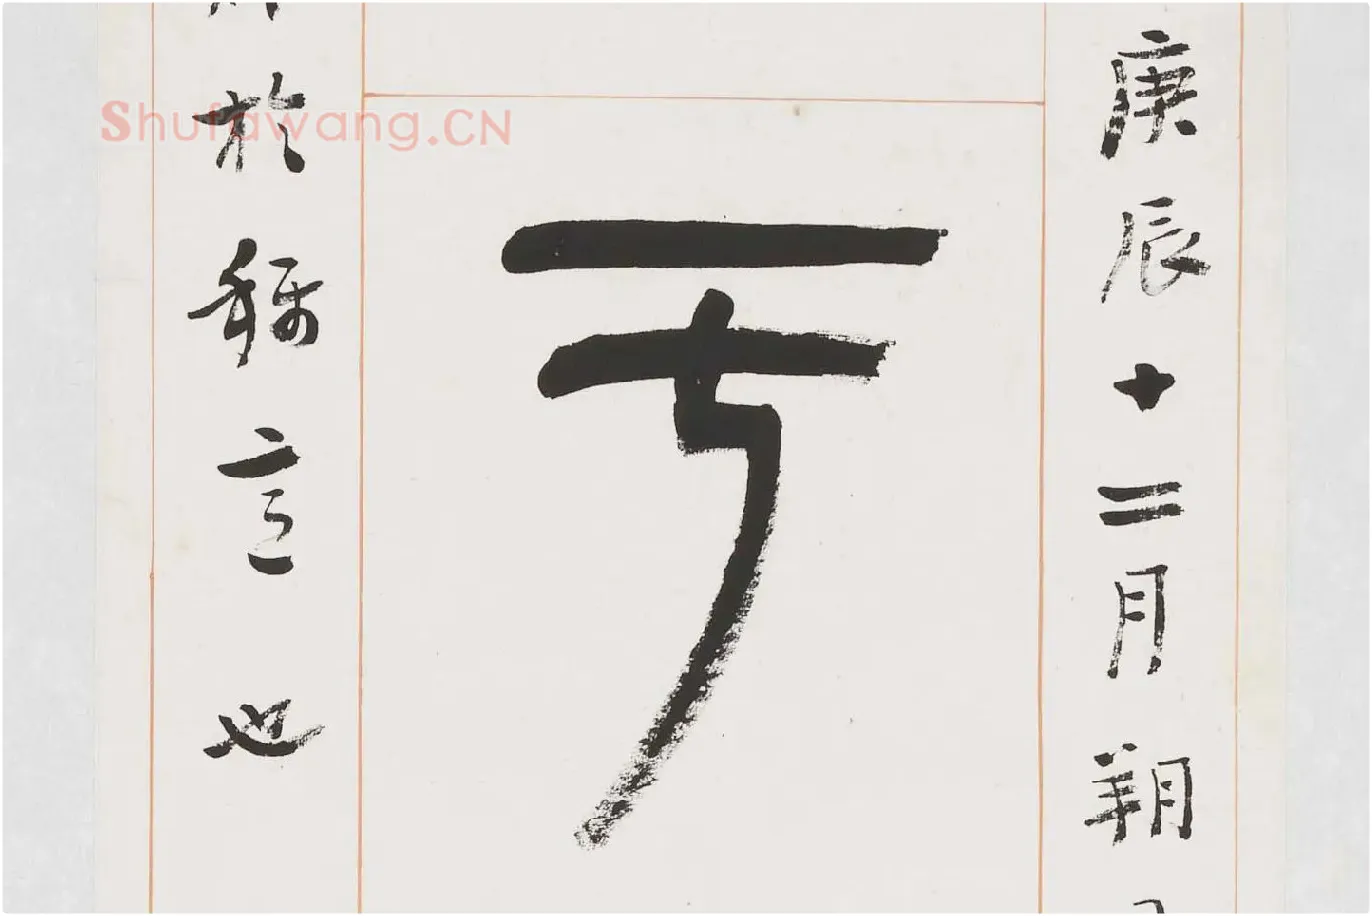 庚辰十二月朔
於稱言也
Shufawang.CN